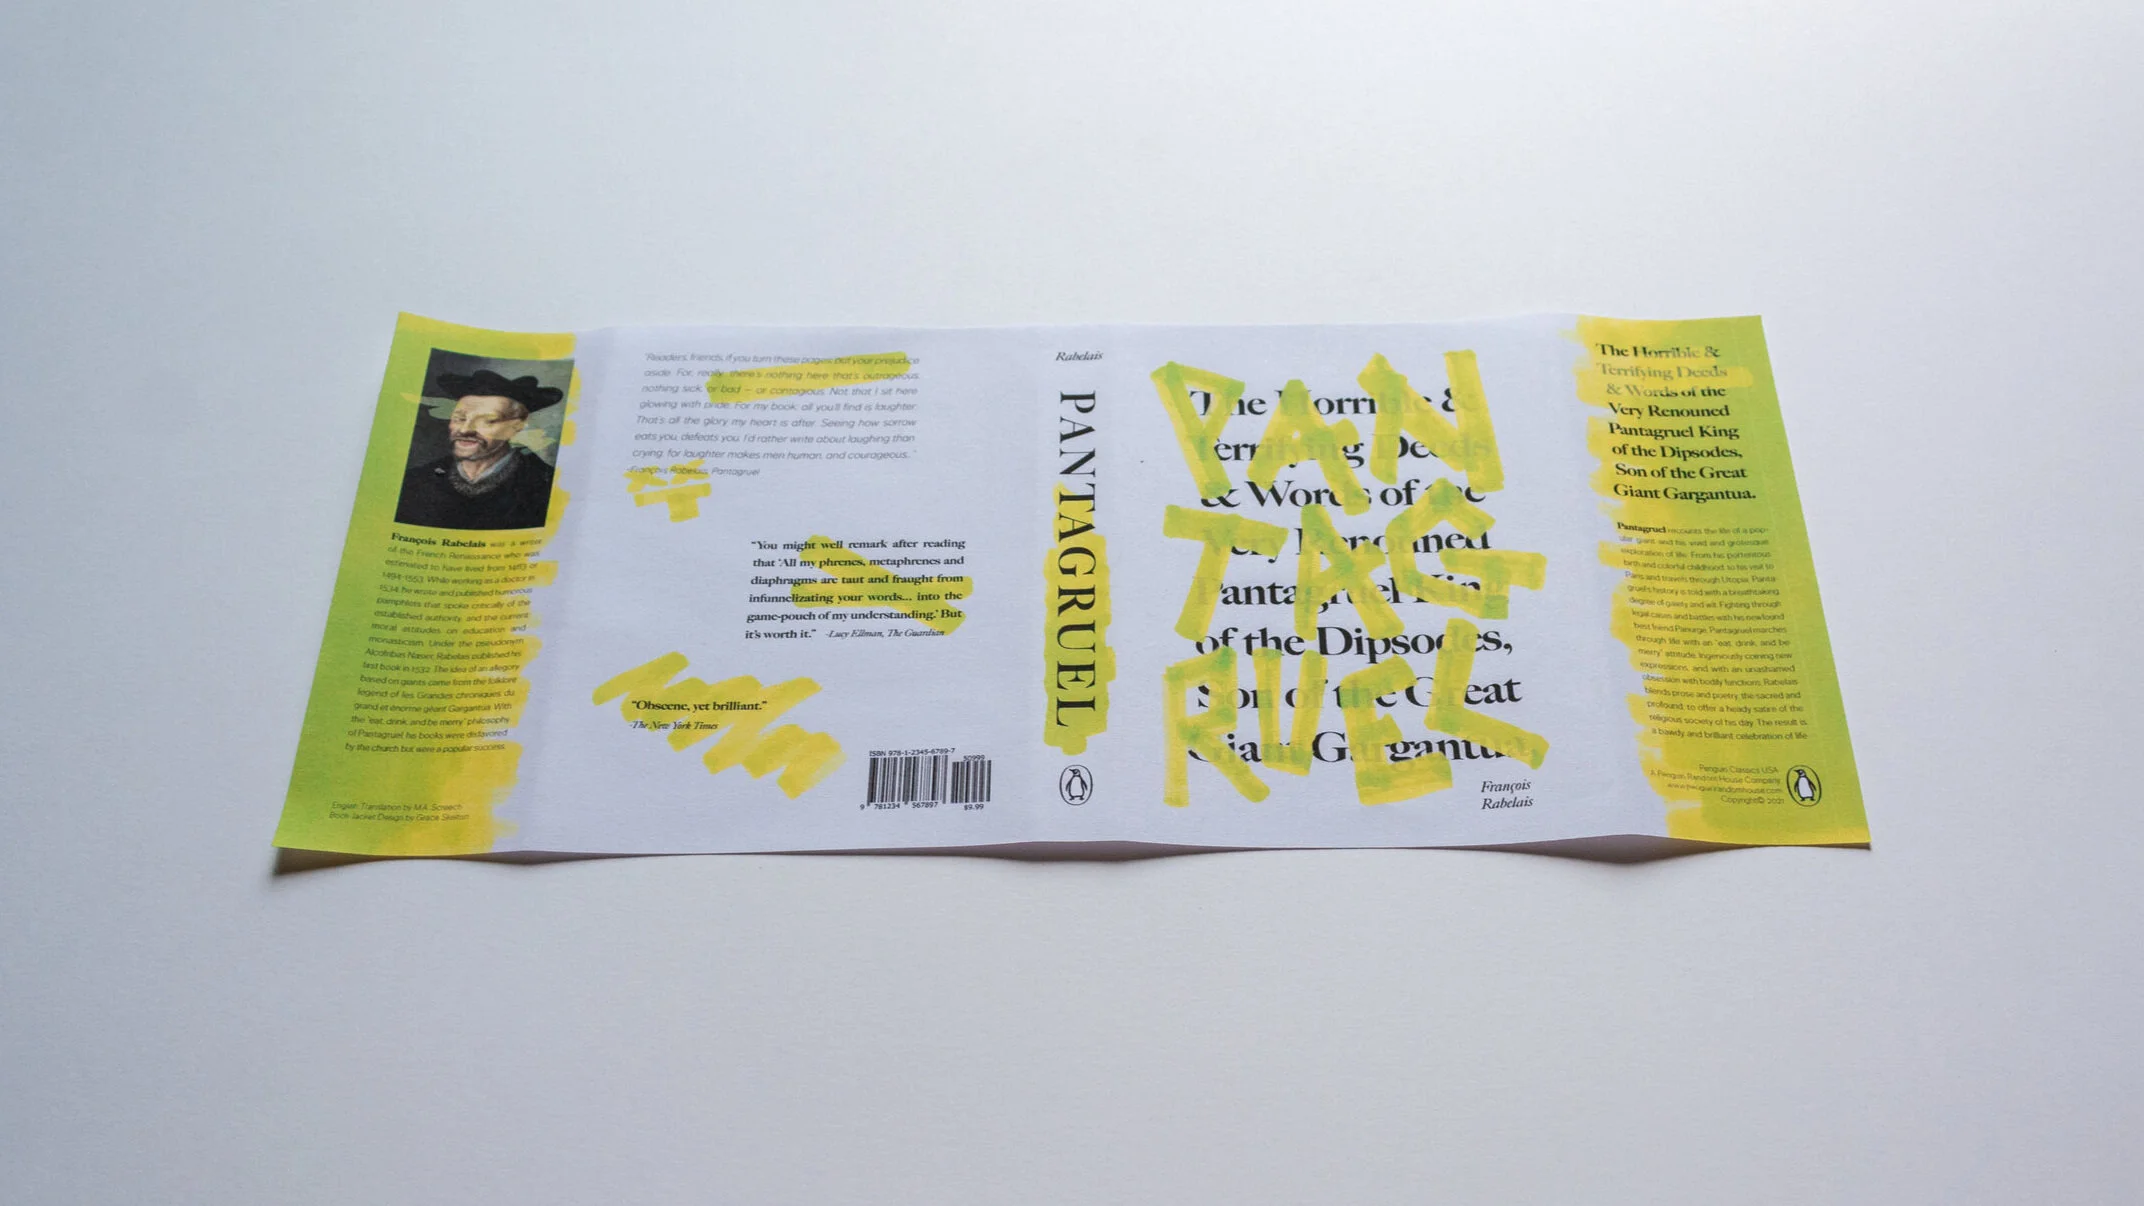 François Rabelais was a writer
of the French Renaissance who was
estimated to have lived from 1483 or
1494-1553. While working as a doctor in
1534, he wrote and published humorous
pamphlets that spoke critically of the
established authority, and the current
moral attitudes on education and
monasticism. Under the pseudonym
Alcofribas Nasier, Rabelais published his
first book in 1532. The idea of an allegory
based on giants came from the folklore
legend of les Grandes chroniques du
grand et énorme géant Gargantua. With
the "eat, drink, and be merry" philosophy
of Pantagruel, his books were disfavored
by the church but were a popular success.
English Translation by M.A. Screech
Book Jacket Design by Grace Skelton
"Readers, friends, if you turn these pages, put your prejudice
aside. For, really, there's nothing here that's outrageous,
nothing sick, or bad — or contagious. Not that I sit here
glowing with pride. For my book: all you'll find is laughter:
That's all the glory my heart is after. Seeing how sorrow
eats you, defeats you, I'd rather write about laughing than
crying, for laughter makes men human, and courageous."
-François Rabelais, Pantagruel
"You might well remark after reading
that 'All my phrenes, metaphrenes and
diaphragms are taut and fraught from
infunnelizating your words... into the
game-pouch of my understanding.' But
it's worth it." -Lucy Ellman, The Guardian
"Obscene, yet brilliant."
-The New York Times
ISBN 978-1-2345-6789-7
50999
9 781234 567897
$9.99
Rabelais
PANTAGRUEL
PAN
TAG
RUEL
The Horrible &
Terrifying Deeds
& Words of the
Very Renouned
Pantagruel King
of the Dipsodes,
Son of the Great
Giant Gargantua.
François
Rabelais
The Horrible &
Terrifying Deeds
& Words of the
Very Renouned
Pantagruel King
of the Dipsodes,
Son of the Great
Giant Gargantua.
Pantagruel recounts the life of a pop-
ular giant and his vivid and grotesque
exploration of life. From his portentous
birth and colorful childhood, to his visit to
Paris and travels through Utopia, Panta-
gruel's history is told with a breathtaking
degree of gaiety and wit. Fighting through
legal cases and battles with his newfound
best friend Panurge, Pantagruel marches
through life with an "eat, drink, and be
merry" attitude. Ingeniously coining new
expressions, and with an unashamed
obsession with bodily functions, Rabelais
blends prose and poetry, the sacred and
profound, to offer a heady satire of the
religious society of his day. The result is
a bawdy and brilliant celebration of life.
Penguin Classics USA
A Penguin Random House Company
www.penguinrandomhouse.com
Copyright© 2021